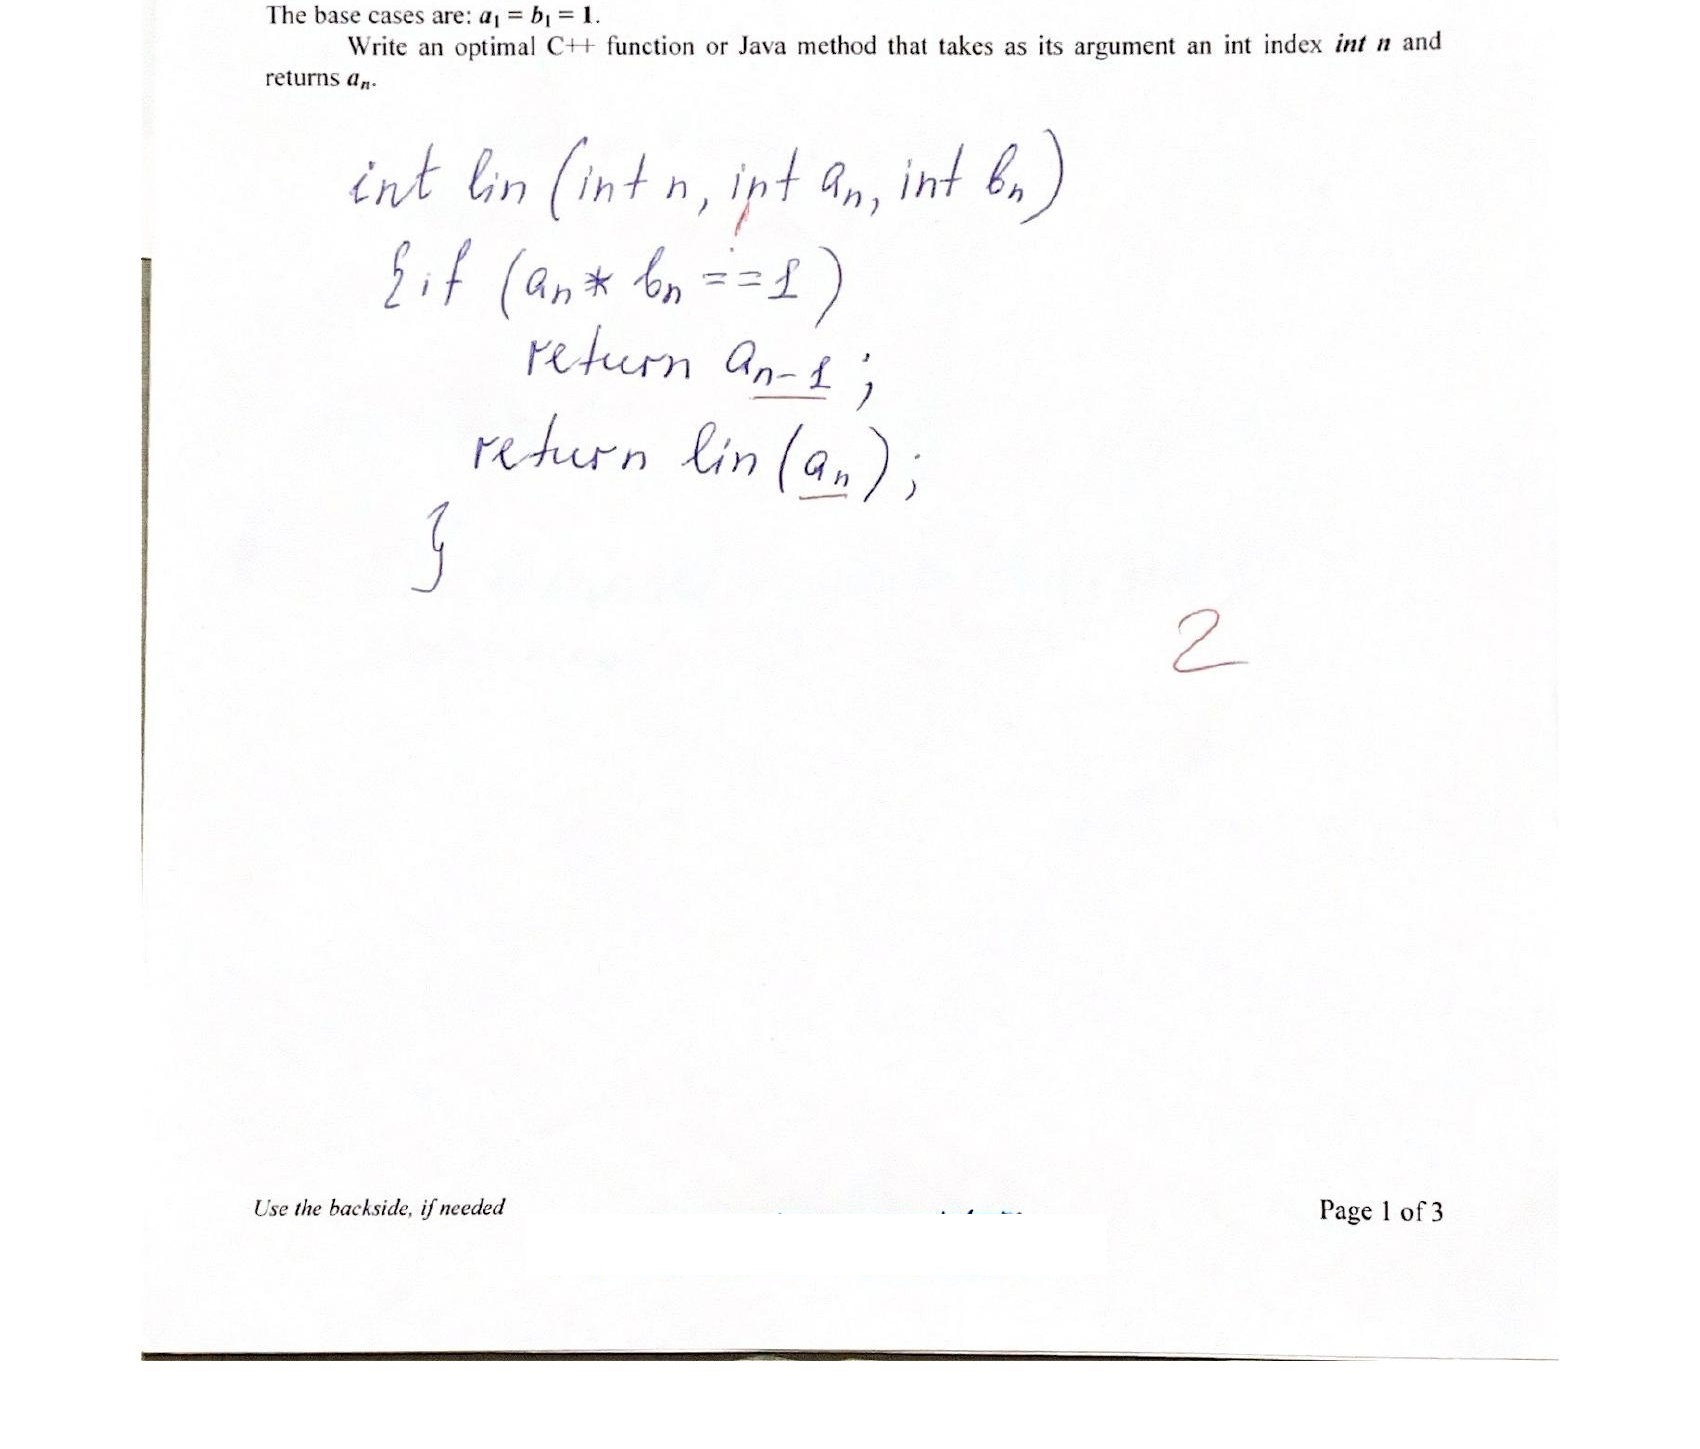 The base cases are: a₁ = b₁ = 1.
Write an optimal C++ function or Java method that takes as its argument an int index int n and
returns aₙ.
int lin (int n, int aₙ, int bₙ)
{if (aₙ * bₙ ==1)
return aₙ₋₁ ;
return lin (aₙ);
}
2
Use the backside, if needed
Page 1 of 3